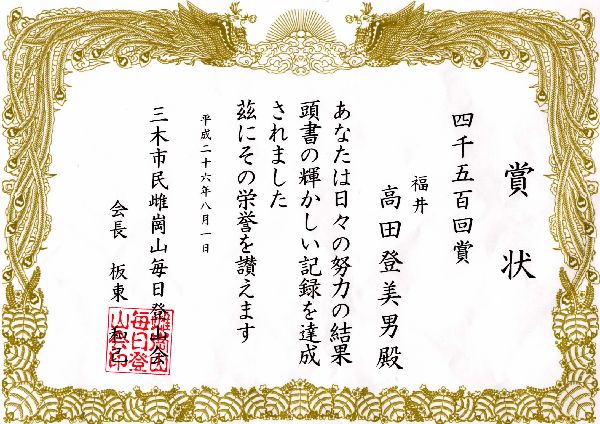 賞状
四千五百回賞
福井
高田登美男殿
あなたは日々の努力の結果
頭書の輝かしい記録を達成
されました
茲にその栄誉を讃えます
平成二十六年八月一日
三木市民雌岡山毎日登山会
会長 板東